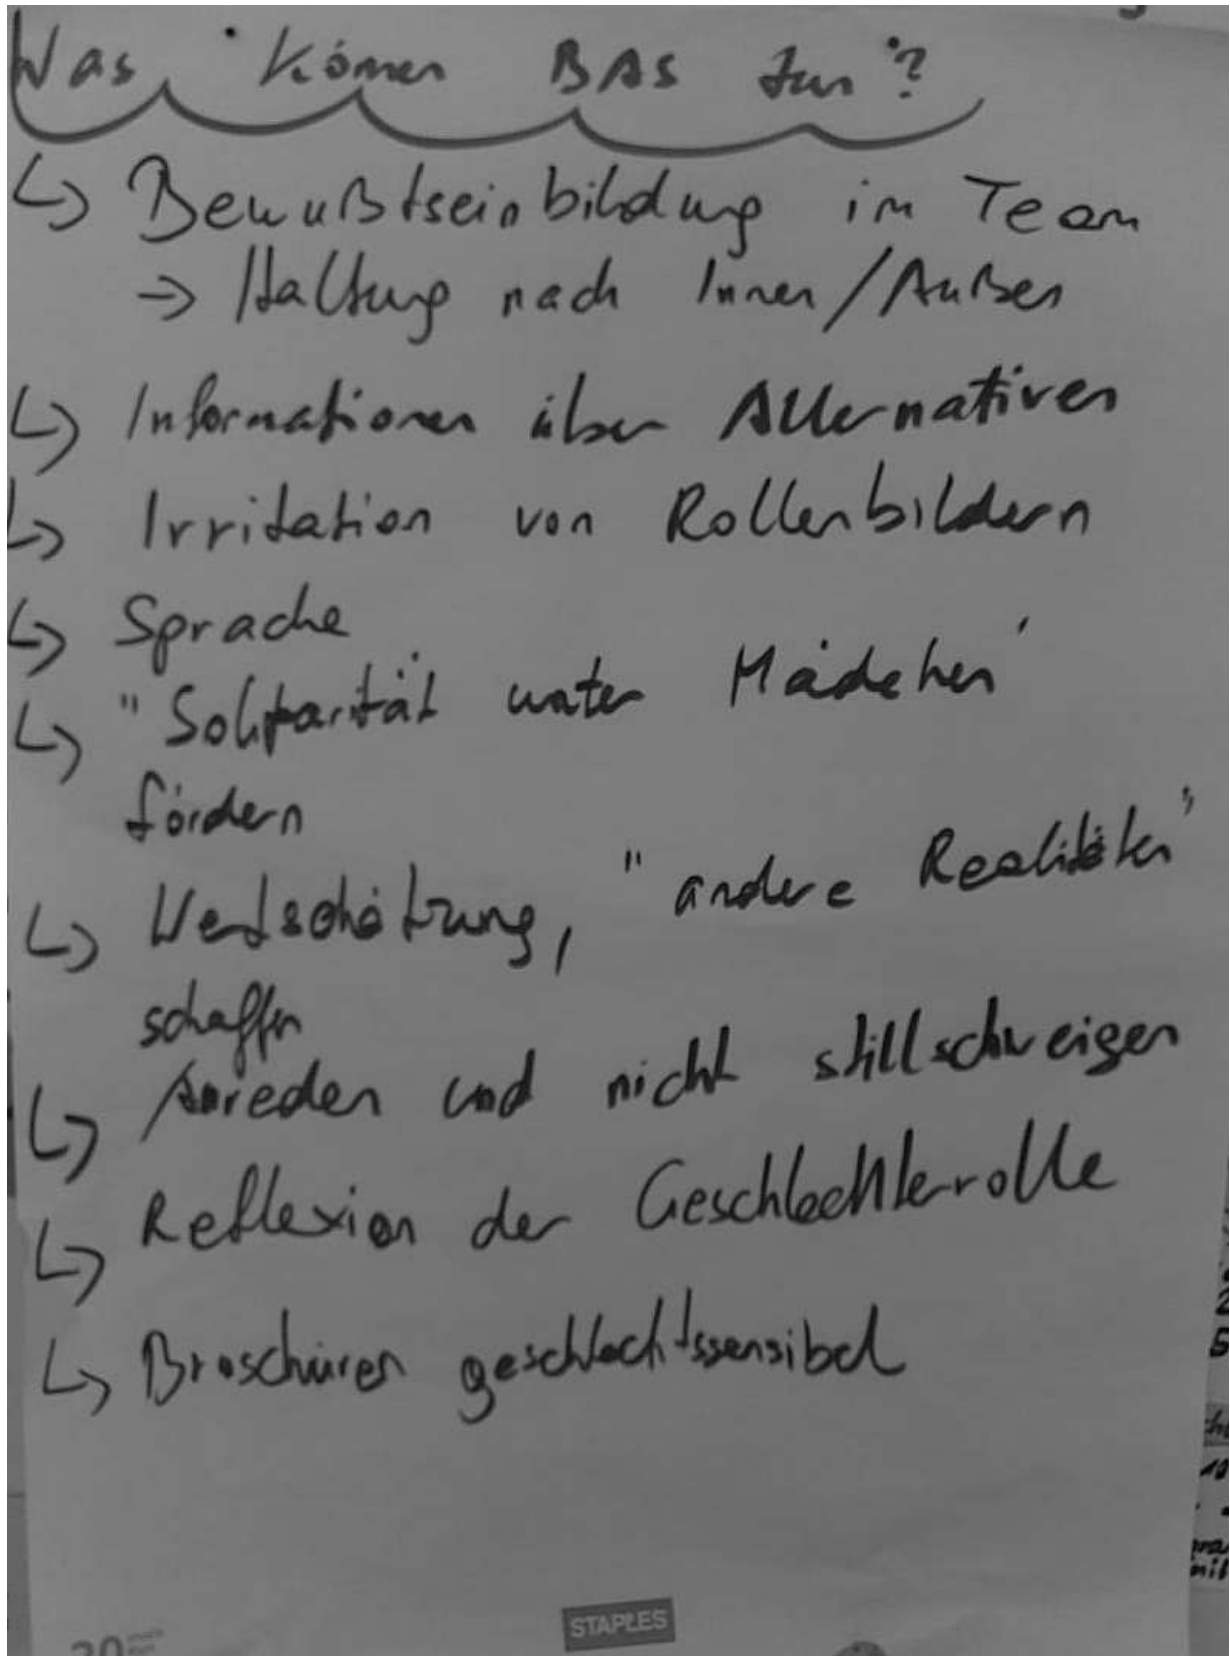 Was können BAS tun?
↳ Bewußtseinbildung im Team
→ Haltung nach Innen/Außen
↳ Informationen über Alternativen
↳ Irritation von Rollenbildern
↳ Sprache
↳ "Solidarität unter Mädchen"
fördern
↳ Wertschätzung, "andere Realitäten"
schaffen
↳ Anreden und nicht stillschweigen
↳ Reflexion der Geschlechterrolle
↳ Broschüren geschlechtssensibel
STAPLES